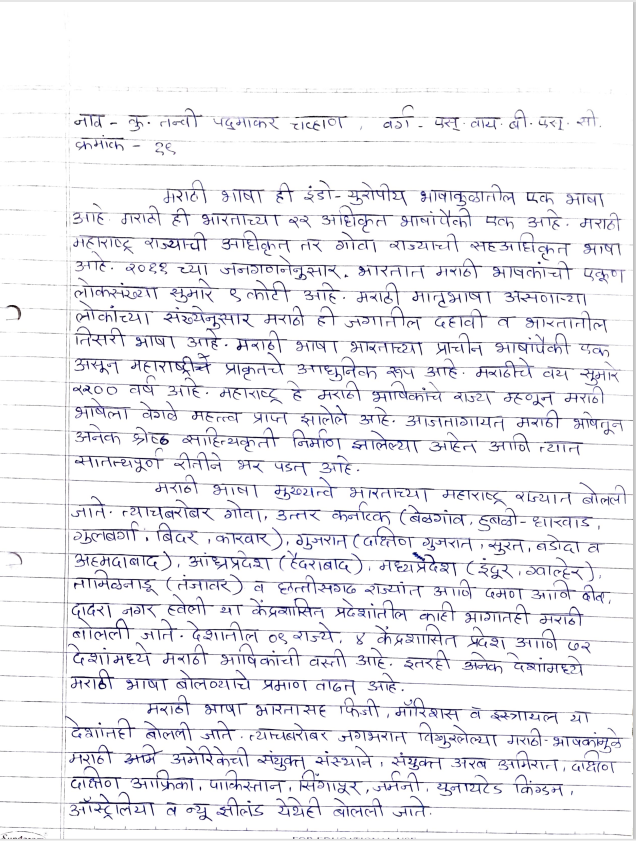 नाव - कु. तन्वी पद्माकर चव्हाण, वर्ग - एस्. वाय. बी. एस्. सी.
क्रमांक - २९
मराठी भाषा ही इंडो-युरोपीय भाषाकुळातील एक भाषा
आहे. मराठी ही भारताच्या २२ अधिकृत भाषांपैकी एक आहे. मराठी
महाराष्ट्र राज्याची अधिकृत तर गोवा राज्याची सहअधिकृत भाषा
आहे. २०११ च्या जनगणनेनुसार, भारतात मराठी भाषकांची एकूण
लोकसंख्या सुमारे ९ कोटी आहे. मराठी मातृभाषा असणाऱ्या
लोकांच्या संख्येनुसार मराठी ही जगातील दहावी व भारतातील
तिसरी भाषा आहे. मराठी भाषा भारताच्या प्राचीन भाषांपैकी एक
असून महाराष्ट्रीचे प्राकृतचे आधुनिक रूप आहे. मराठीचे वय सुमारे
२२०० वर्ष आहे. महाराष्ट्र हे मराठी भाषिकांचे राज्य म्हणून मराठी
भाषेला वेगळे महत्त्व प्राप्त झालेले आहे. आजतागायत मराठी भाषेतून
अनेक श्रेष्ठ साहित्यकृती निर्माण झालेल्या आहेत आणि त्यात
सातत्यपूर्ण रीतीने भर पडत आहे.
मराठी भाषा मुख्यत्वे भारताच्या महाराष्ट्र राज्यात बोलली
जाते. त्याचबरोबर गोवा, उत्तर कर्नाटक (बेळगांव, हुबळी-धारवाड,
गुलबर्गा, बिदर, कारवार), गुजरात (दक्षिण गुजरात, सुरत, बडोदा व
अहमदाबाद), आंध्रप्रदेश (हैदराबाद), मध्यप्रदेश (इंदूर, ग्वाल्हेर),
तामिळनाडू (तंजावर) व छत्तीसगढ राज्यांत आणि दमण आणि दीव,
दादरा नगर हवेली या केंद्रशासित प्रदेशांतील काही भागातही मराठी
बोलली जाते. देशातील ०९ राज्ये, ४ केंद्रशासित प्रदेश आणि ७२
देशांमध्ये मराठी भाषिकांची वस्ती आहे. इतरही अनेक देशांमध्ये
मराठी भाषा बोलण्याचे प्रमाण वाढत आहे.
मराठी भाषा भारतासह फिजी, मॉरिशस व इस्त्रायल या
देशांतही बोलली जाते. त्याचबरोबर जगभरात विखुरलेल्या मराठी-भाषकांमुळे
मराठी अमेरिकेची संयुक्त संस्थाने, संयुक्त अरब अमिरात, दक्षिण
दक्षिण आफ्रिका, पाकिस्तान, सिंगापूर, जर्मनी, युनायटेड किंग्डम,
ऑस्ट्रेलिया व न्यू झीलंड येथेही बोलली जाते.